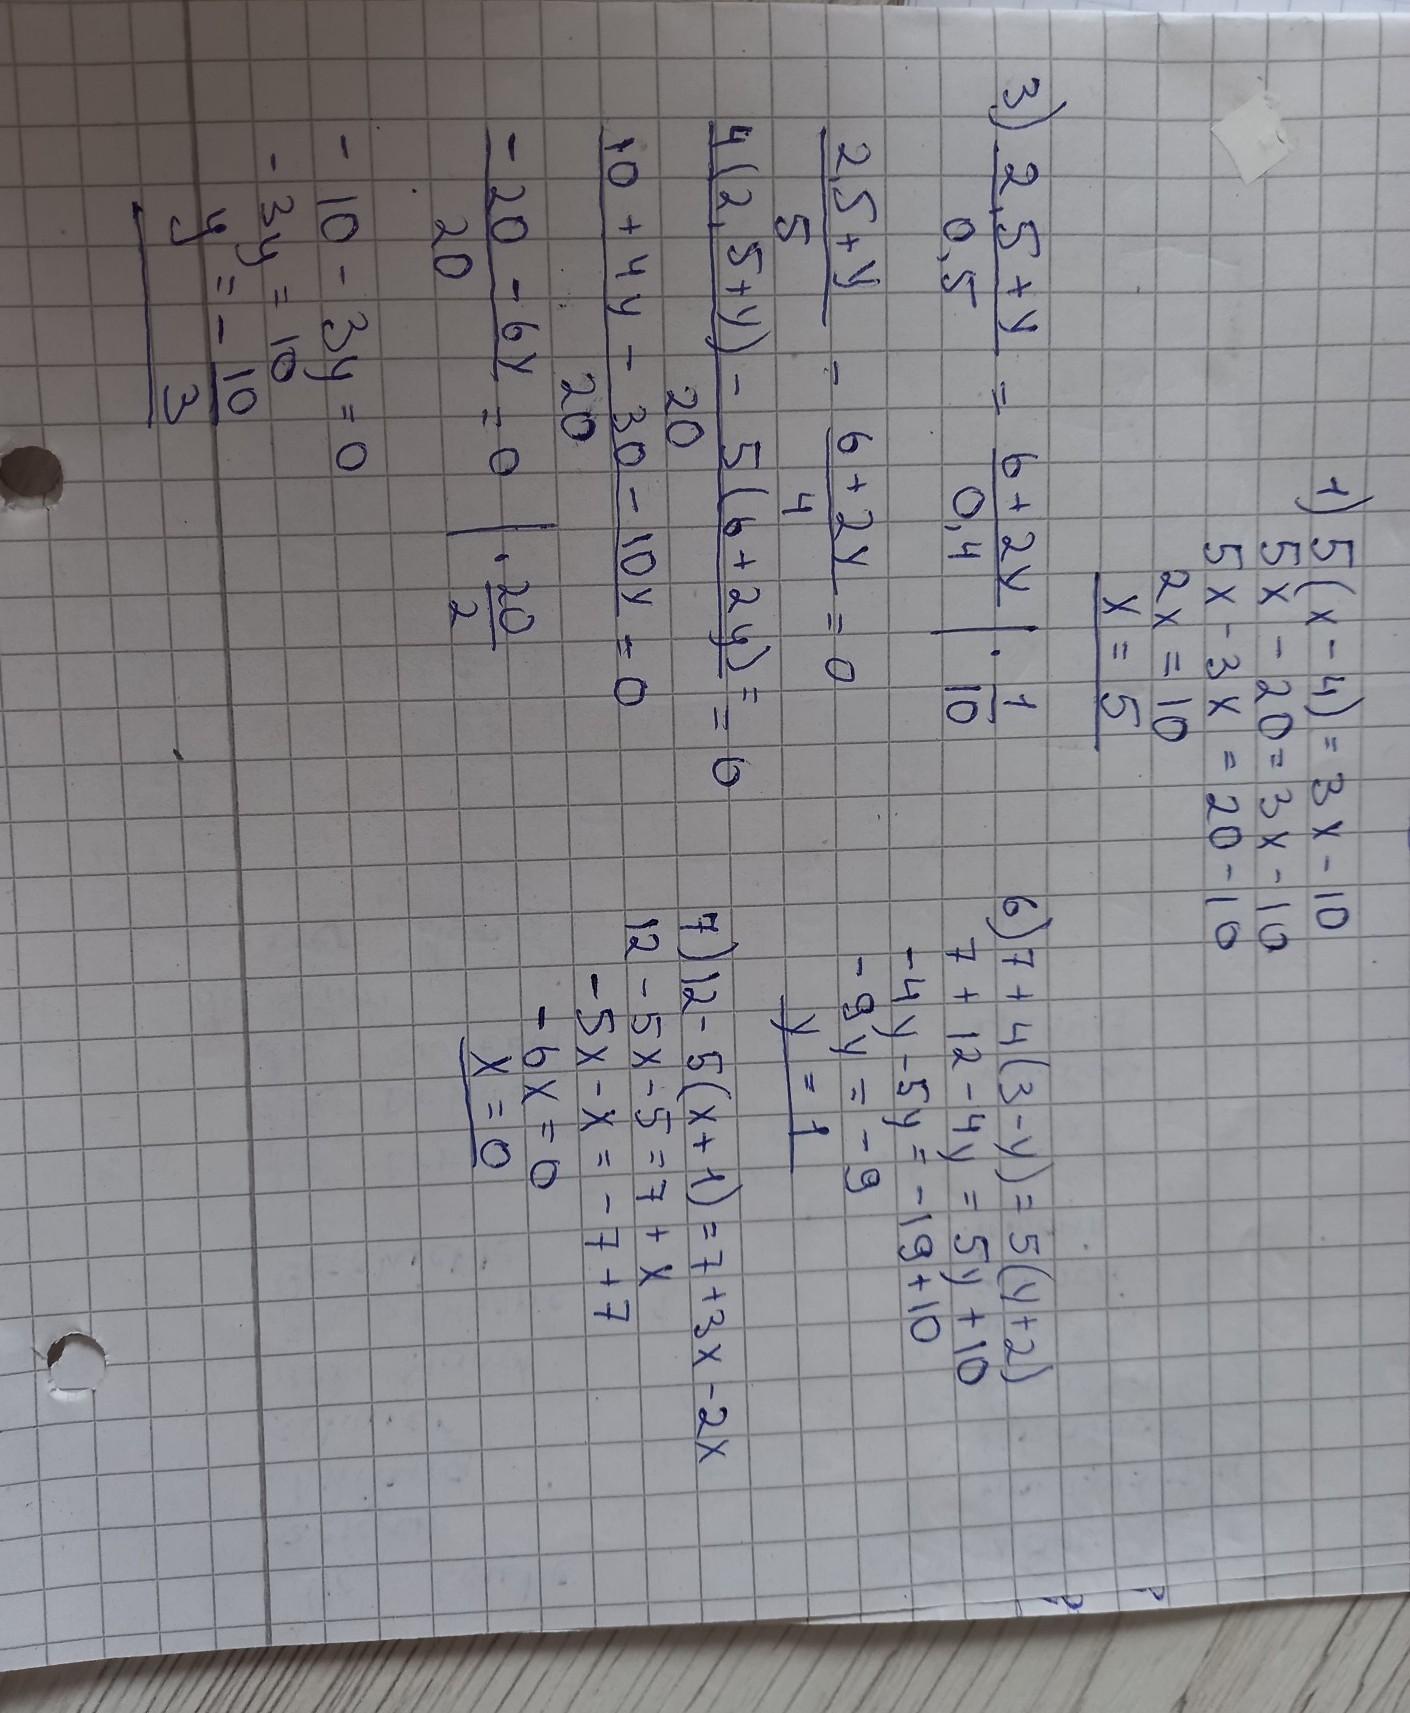 1) 5(x-4) = 3x-10
5x-20 = 3x-10
5x-3x = 20-10
2x = 10
x = 5
3) (2,5+y)/0,5 = (6+2y)/0,4 | · 1/10
(2,5+y)/5 - (6+2y)/4 = 0
(4(2,5+y) - 5(6+2y))/20 = = 0
(10+4y-30-10y)/20 = 0
(-20-6y)/20 = 0 | · 20/2
-10-3y = 0
-3y = 10
y = -10/3
6) 7+4(3-y) = 5(y+2)
7+12-4y = 5y+10
-4y-5y = -19+10
-9y = -9
y = 1
7) 12-5(x+1) = 7+3x-2x
12-5x-5 = 7+x
-5x-x = -7+7
-6x = 0
x = 0